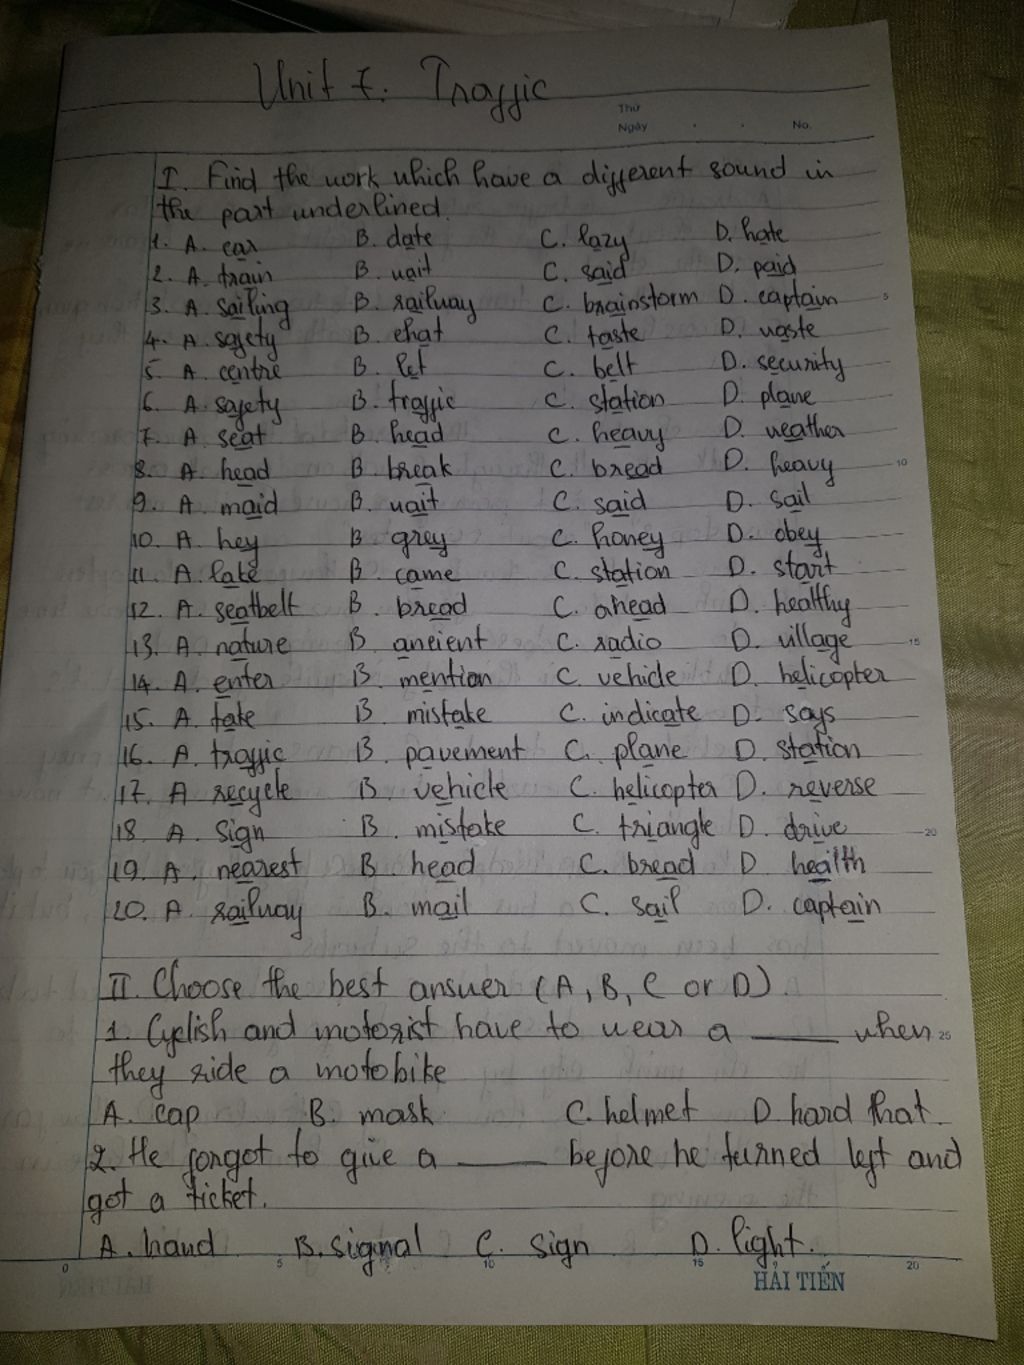 Unit 7. Traffic
Thứ
Ngày . . No.
I. Find the work which have a different sound in
the part underlined.
1. A. car B. date C. lazy D. hate
2. A. train B. wait C. said D. paid
3. A. sailing B. railway C. brainstorm D. captain
5
4. A. safety B. chat C. taste D. waste
5 A. centre B. let C. belt D. security
6. A. safety B. traffic C. station D. plane
7. A. seat B. head C. heavy D. weather
8. A. head B. break C. bread D. heavy
10
9. A. maid B. wait C. said D. sail
10. A. hey B grey C. honey D. obey
11. A. late B. came C. station D. start
12. A. seatbelt B. bread C. ahead D. healthy
13. A. nature B ancient C. radio D. village
15
14. A. enter B. mention C. vehicle D. helicopter
15. A. take B mistake C. indicate D. says
16. A. traffic B. pavement C. plane D. station
17. A recycle B. vehicle C. helicopter D. reverse
18. A. sign B. mistake C. triangle D. drive
20
19. A. nearest B head C. bread D health
20. A. railway B. mail C. sail D. captain
II. Choose the best answer (A, B, C or D).
1. Cyclish and motorist have to wear a ____ when
25
they ride a motobike
A. cap B. mask C. helmet D hard that.
2. He forgot to give a ____ before he turned left and
got a ticket.
A. hand B. signal C. sign D. light.
0 5 10 15 20
HẢI TIẾN